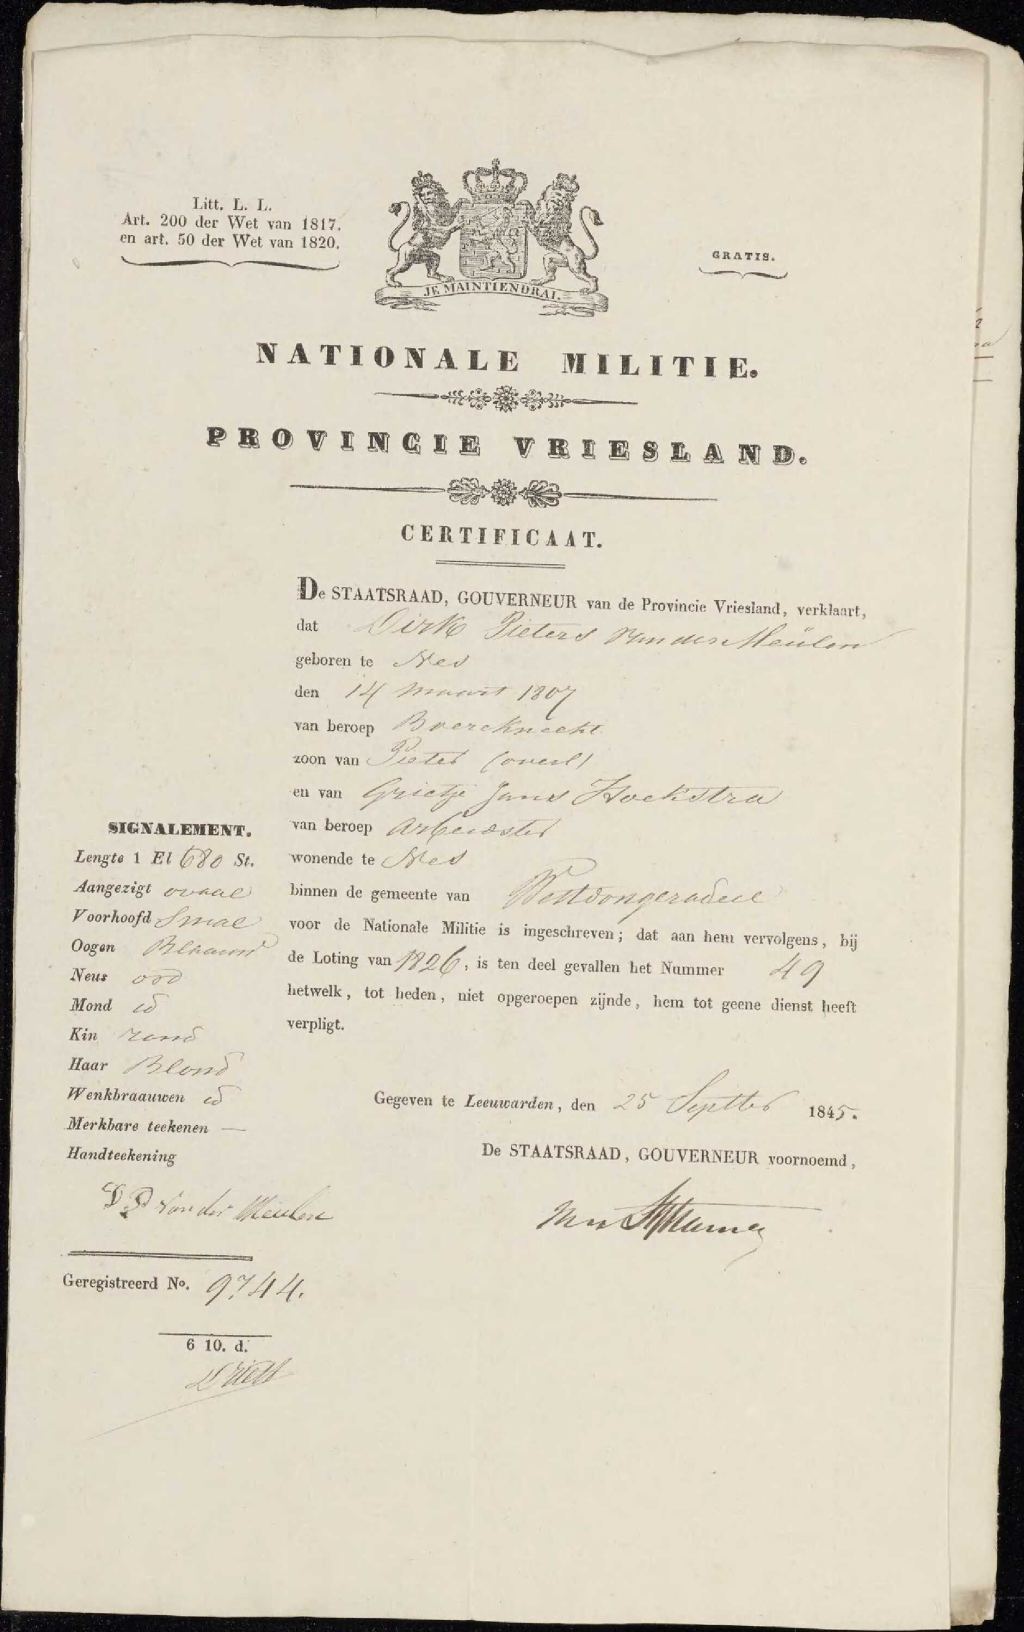 Litt. L. L.
Art. 200 der Wet van 1817.
en art. 50 der Wet van 1820.
JE MAINTIENDRAI.
GRATIS.
NATIONALE MILITIE.
PROVINCIE VRIESLAND.
CERTIFICAAT.
De STAATSRAAD, GOUVERNEUR van de Provincie Vriesland, verklaart,
dat Dirk Pieters van der Meulen
geboren te Nes
den 14 maart 1807
van beroep Boereknecht
zoon van Pieter (overl)
en van Grietje Jans Hoekstra
van beroep Arbeidster
wonende te Nes
binnen de gemeente van Westdongeradeel
voor de Nationale Militie is ingeschreven; dat aan hem vervolgens, bij
de Loting van 1826, is ten deel gevallen het Nummer 49
hetwelk, tot heden, niet opgeroepen zijnde, hem tot geene dienst heeft
verpligt.
SIGNALEMENT.
Lengte 1 El 680 St.
Aangezigt ovaal
Voorhoofd Smal
Oogen Blaauw
Neus ord
Mond id
Kin rond
Haar Blond
Wenkbraauwen id
Merkbare teekenen —
Handteekening
D P van der Meulen
Gegeven te Leeuwarden, den 25 Septber 1845.
De STAATSRAAD, GOUVERNEUR voornoemd,
Geregistreerd No. 9744.
6 10. d.